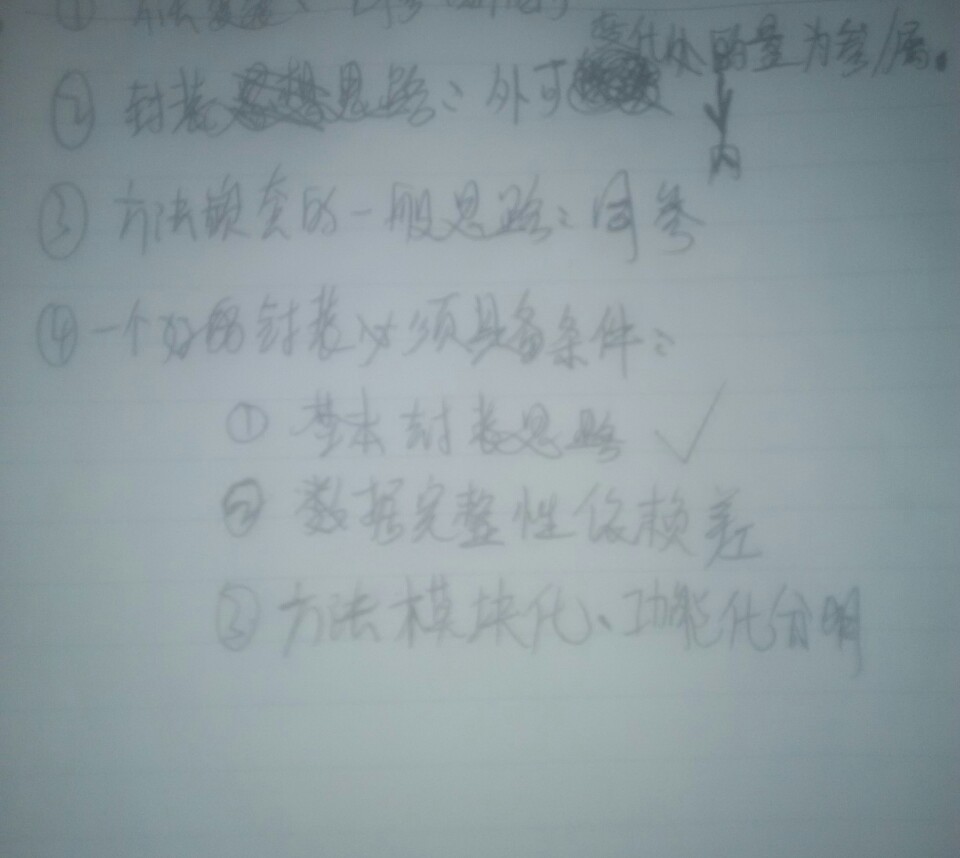 ① 方法
② 封装思路：外可变化处的量为参/属。
内
③ 方法嵌套的一般思路：同参
④ 一个好的封装必须具备条件：
① 基本封装思路 ✓
② 数据完整性依赖差
③ 方法模块化、功能化分明